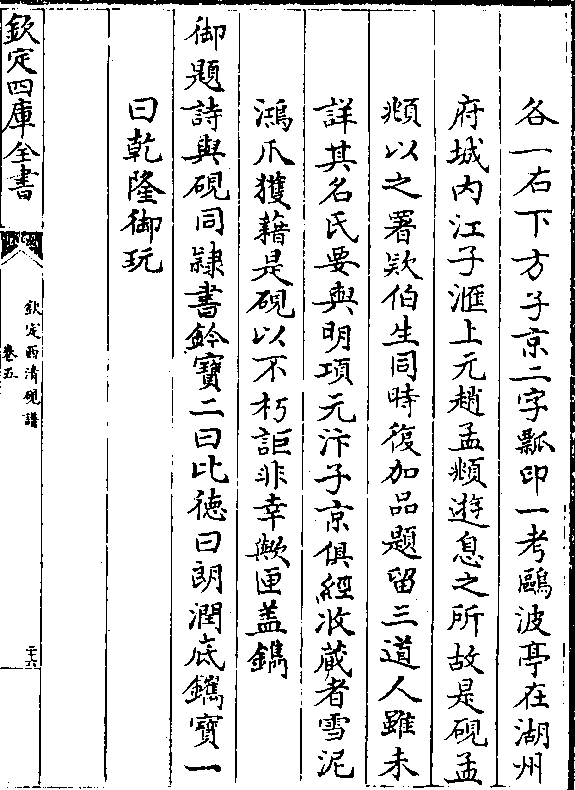 各一右下方子京二字瓢印一考鷗波亭在湖州
府城内江子滙上元趙孟頫遊息之所故是硯孟
頫以之署欵伯生同時復加品題留三道人雖未
詳其名氏要與明項元汴子京俱經收藏者雪泥
鴻爪獲藉是硯以不朽詎非幸歟匣蓋鐫
御題詩與硯同隷書鈐寶二曰比徳曰朗潤底鐫寶一
曰乾隆御玩
欽定四庫全書
欽定西清硯譜
卷五
二十六